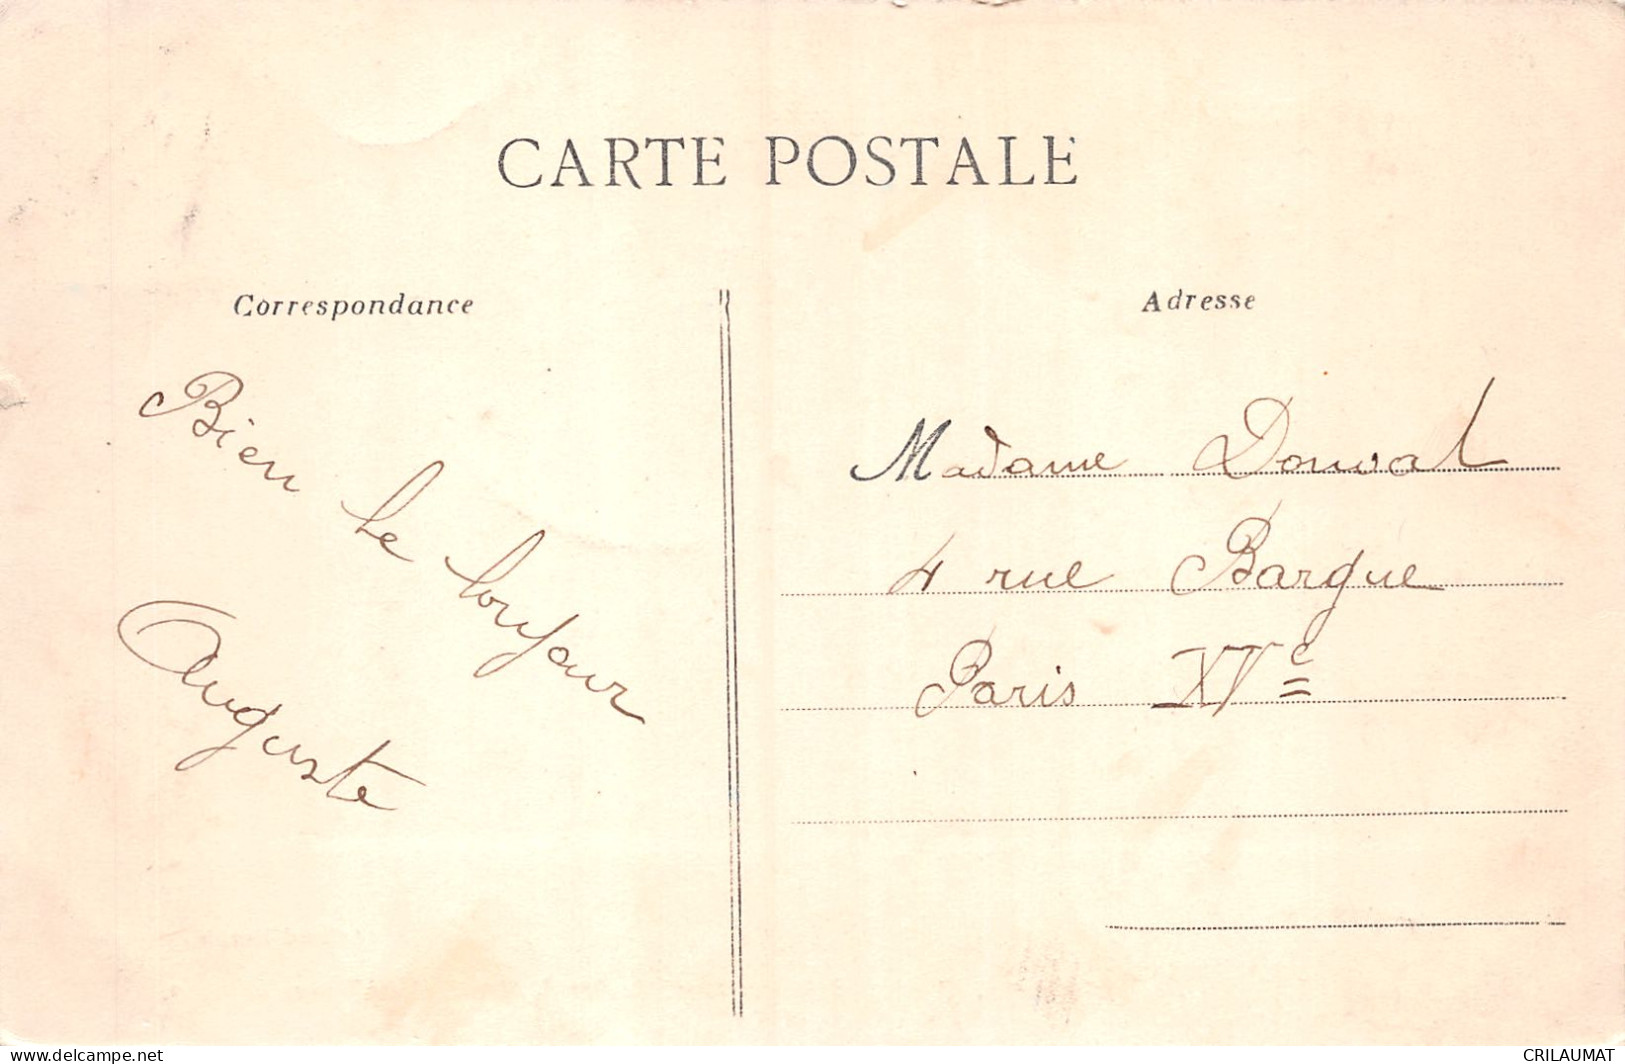 CARTE POSTALE
Correspondance
Adresse
Bien le bonjour
Auguste
Madame Douval
4 rue Bargue
Paris XVe
www.delcampe.net
CRILAUMAT